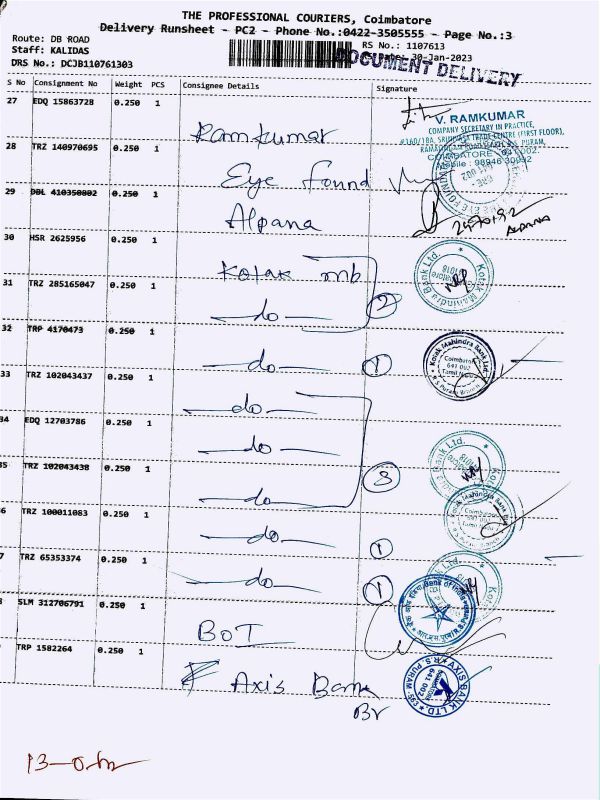 THE PROFESSIONAL COURIERS, Coimbatore
Delivery Runsheet - PC2 - Phone No.:0422-3505555 - Page No.:3
Route: DB ROAD
RS No.: 1107613
Staff: KALIDAS
30-Jan-2023
DRS No.: DCJB110761303
DOCUMENT DELIVERY
S No Consignment No Weight PCS Consignee Details Signature
27 EDQ 15863728 0.250 1
Ramkumar
V. RAMKUMAR
COMPANY SECRETARY IN PRACTICE,
28 TRZ 140970695 0.250 1
Eye found
29 DBL 410350802 0.250 1
Alpana
ALPANA
30 HSR 2625956 0.250 1
Kotak mb
Kotak Mahindra Bank Ltd.
31 TRZ 285165047 0.250 1
do
2
32 TRP 4170473 0.250 1
do
1
Kotak Mahindra Bank Ltd.
Coimbatore
641 002
33 TRZ 102043437 0.250 1
do
34 EDQ 12703786 0.250 1
do
35 TRZ 102043438 0.250 1
do
3
6 TRZ 100011083 0.250 1
do
1
7 TRZ 65353374 0.250 1
do
1
8 SLM 312706791 0.250 1
BOI
Bank of India
TRP 1582264 0.250 1
Axis Bank
Br
AXIS BANK LTD
R.S. PURAM